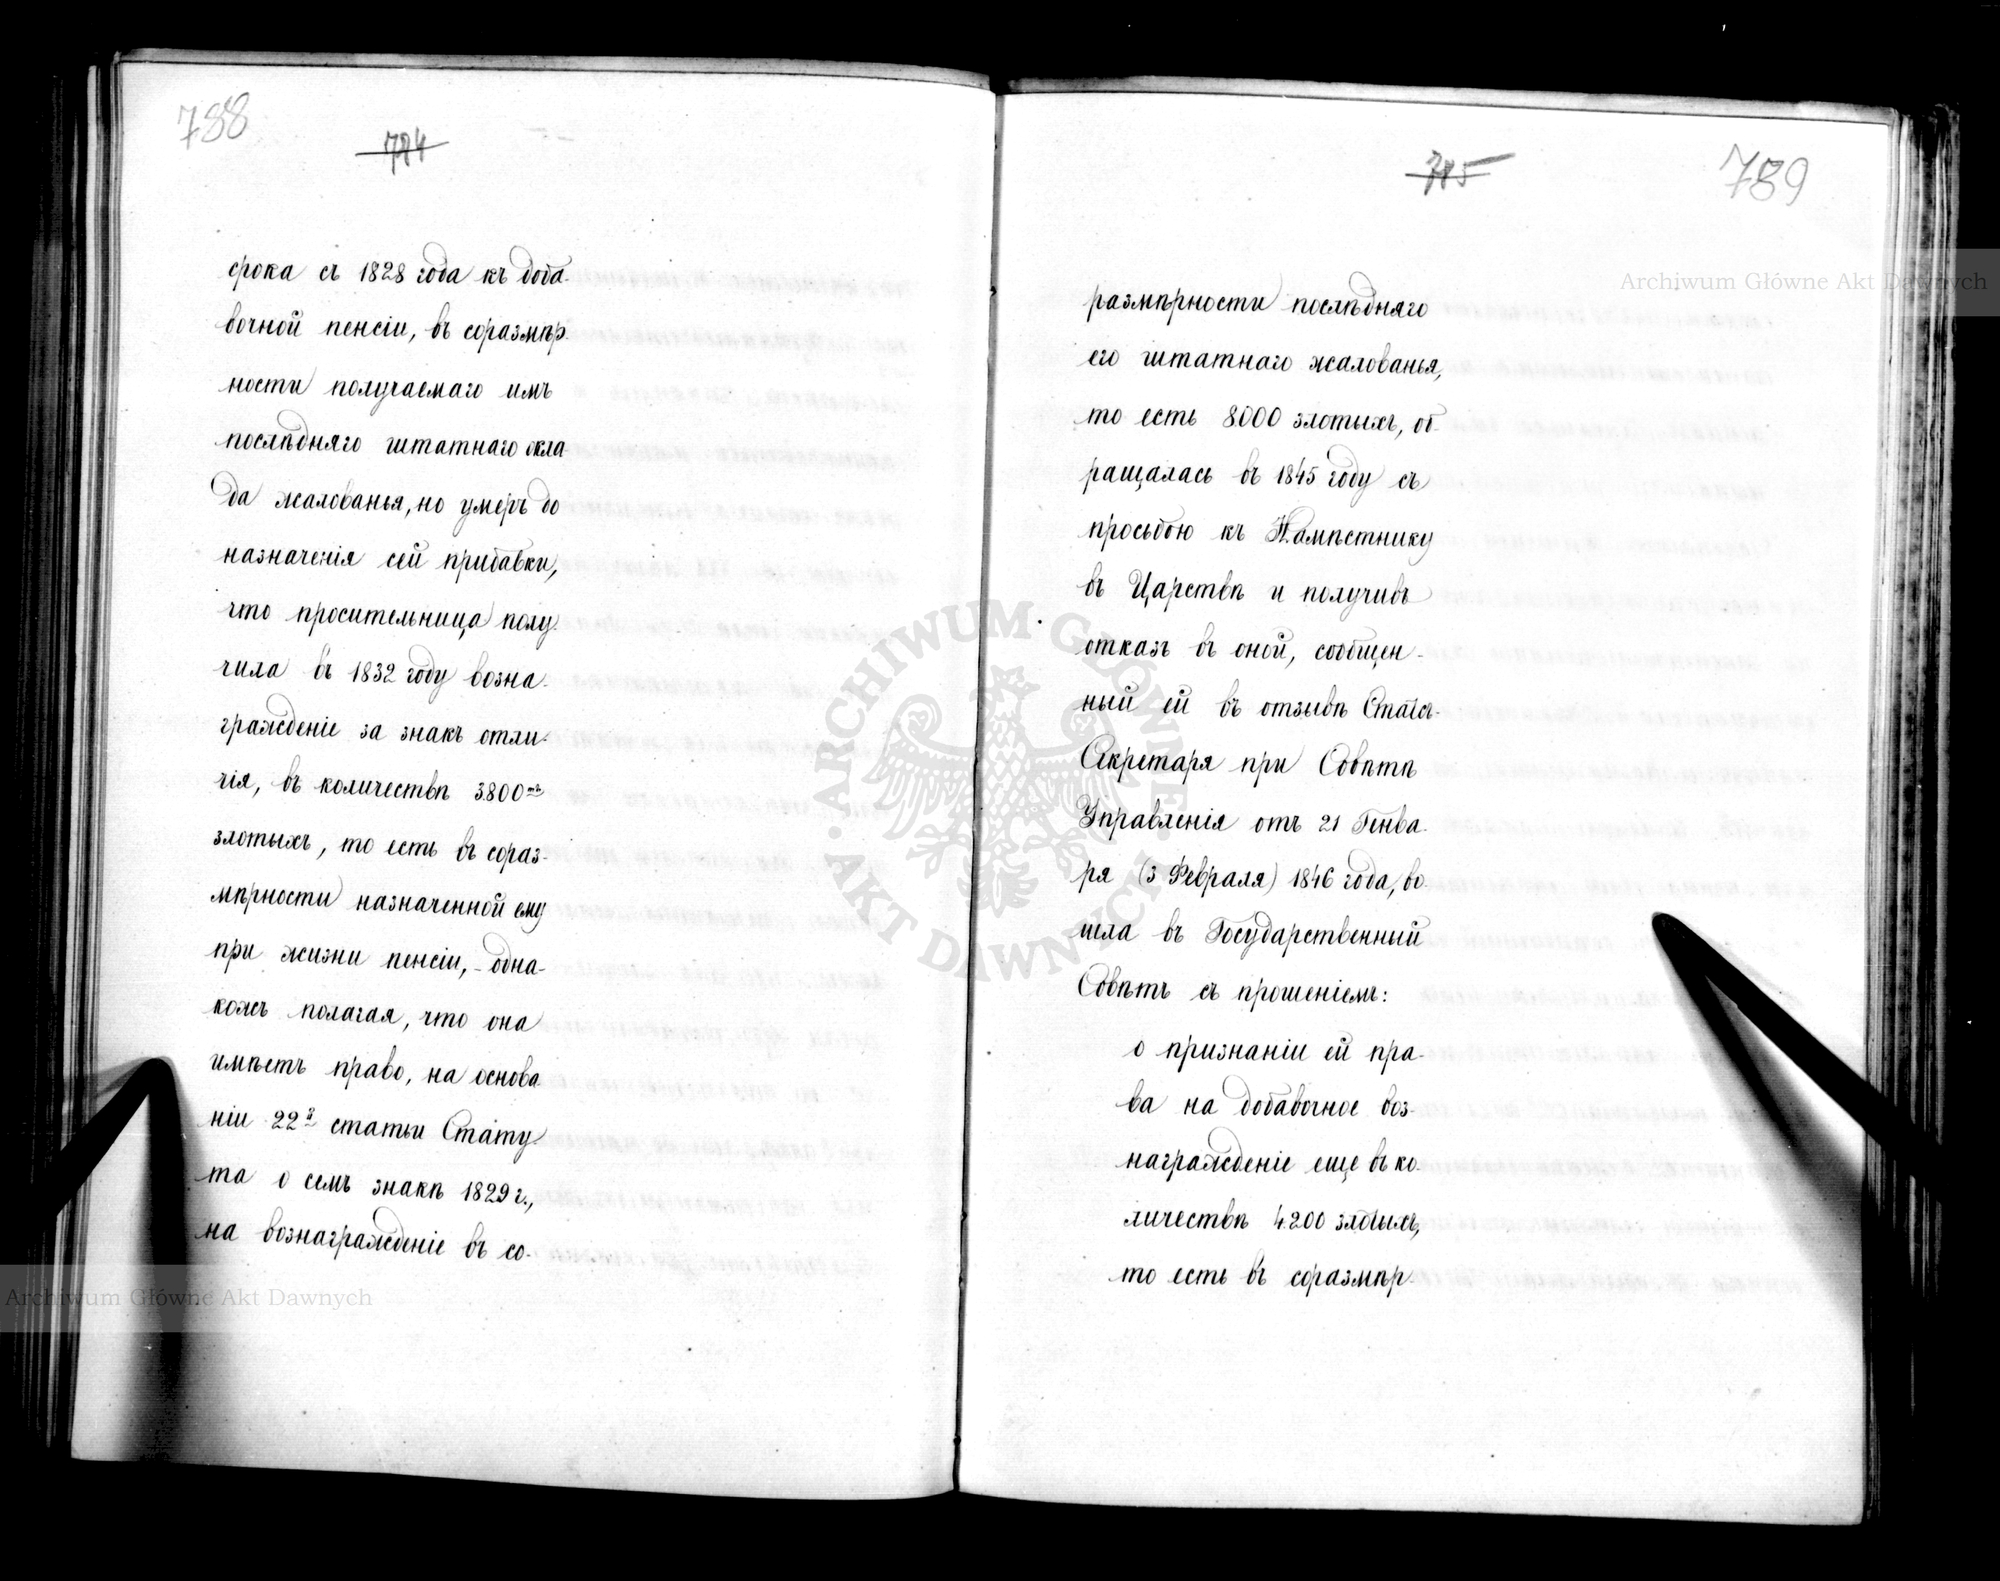 788
784
срока съ 1828 года къ доба-
вочной пенсіи, въ соразмѣр-
ности получаемаго имъ
послѣдняго штатнаго окла
да жалованья, но умеръ до
назначенія сей прибавки,
что просительница полу-
чила въ 1832 году возна-
гражденіе за знакъ отли-
чія, въ количествѣ 3800тъ
злотыхъ, то есть въ сораз-
мѣрности назначенной ему
при жизни пенсіи, - одна-
кожъ полагая, что она
имѣетъ право, на основа
ніи 22й статьи Стату-
та о семъ знакѣ 1829 г.,
на вознагражденіе въ со-
785
789
размѣрности послѣдняго
его штатнаго жалованья,
то есть 8000 злотыхъ, об-
ращалась въ 1845 году съ
просьбою къ Намѣстнику
въ Царствѣ и получивъ
отказъ въ оной, сообщен-
ный ей въ отзывѣ Статсъ-
Секретаря при Совѣтѣ
Управленія отъ 21 Генва-
ря (3 Февраля) 1846 года, во-
шла въ Государственный
Совѣтъ съ прошеніемъ:
о признаніи ей пра-
ва на добавочное воз-
награжденіе еще въ ко-
личествѣ 4200 злотыхъ,
то есть въ соразмѣр-
Archiwum Główne Akt Dawnych
ARCHIWUM GŁÓWNE AKT DAWNYCH
Archiwum Główne Akt Dawnych